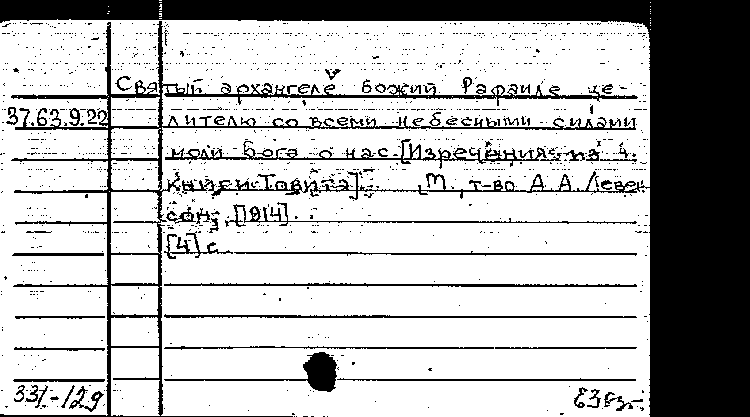 Святый архангеле божий Рафаиле це-
37.63.9.22 лителю со всеми небесными силами
моли бога о нас. [Изречения из 4.
книги Товита]. М., т-во А. А. Левен-
сон, [1914].
[4] с.
331-129